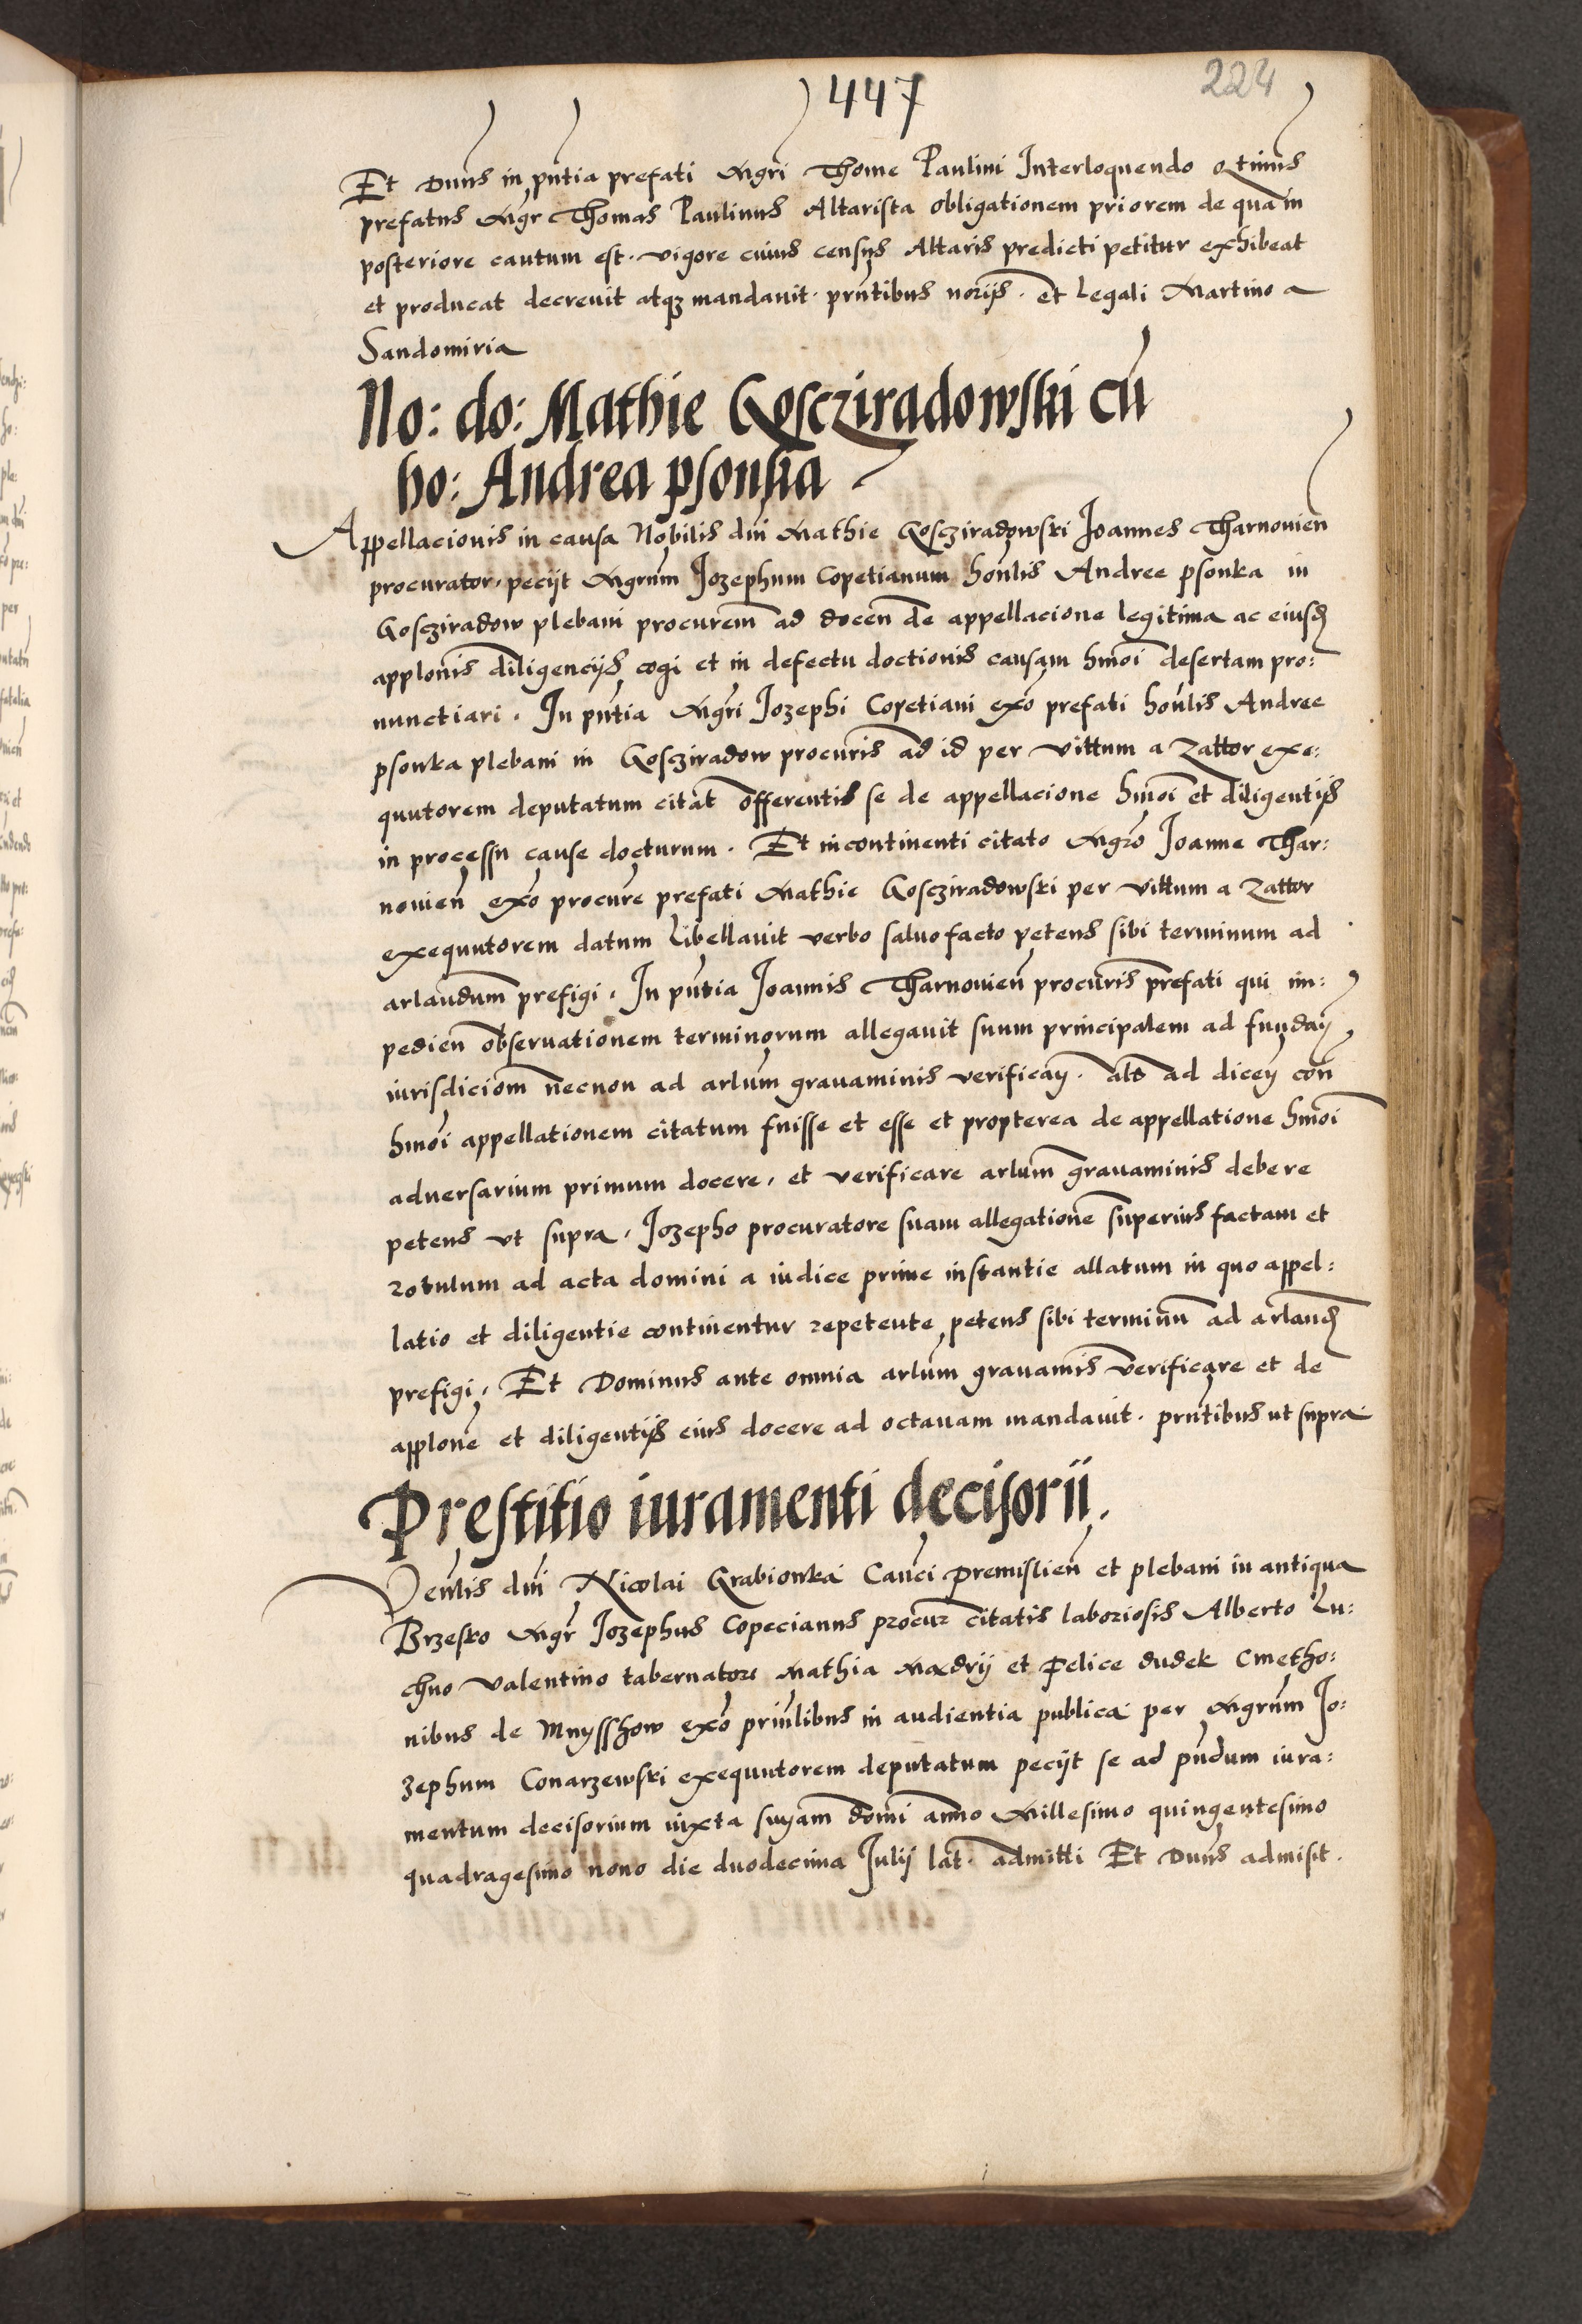 447
224
Et Dnus in pntia prefati Mgri Thome Paulini Interloquendo qtinus
prefatus Mgr Thomas Paulinus Altarista obligationem priorem de qua in
posteriore cautum est. vigore cuius census Altaris predicti petitur exhibeat
et producat decreuit atqz mandauit. pntibus norijs. et Legali Martino a
Sandomiria
No: do: Mathie Goscziradowski cu
ho: Andrea psonka
Appellacionis in causa Nobilis dni Mathie Goscziradowski Joannes Tharnouien
procurator, pecijt Mgrum Jozephum Copetianum honlis Andree psonka in
Gosziradow plebani procurem ad docen de appellacione legitima ac eiusd
applonis diligencijs cogi et in defectu doctionis causam hmoi desertam pro:
nunctiari. In pntia Mgri Jozephi Copetiani exo prefati honlis Andree
psonka plebani in Gosziradow procuris ad id per vittum a Zattor exe:
quutorem deputatum citat offerentis se de appellacione hmoi et diligentijs
in processu cause docturum. Et incontinenti citato Mgro Joanne Thar:
nouien exo procure prefati Mathie Goscziradowski per vittum a Zattor
exequutorem datum Libellauit verbo saluo facto petens sibi terminum ad
arlandum prefigi. In pntia Joannis Tharnouien procuris prefati qui im:
pedien obseruationem terminorum allegauit suum principalem ad fundan
iurisdiciom necnon ad arlum grauaminis verifican. als ad dicen con
hmoi appellationem citatum fuisse et esse et propterea de appellatione hmoi
aduersarium primum docere, et verificare arlum grauaminis debere
petens vt supra. Jozepho procuratore suam allegatione superius factam et
rotulum ad acta domini a iudice prime instantie allatum in quo appel:
latio et diligentie continentur repetente petens sibi terminu ad arland
prefigi. Et Dominus ante omnia arlum grauamis verificare et de
applone et diligentijs eius docere ad octauam mandauit. pntibus ut supra
Prestitio iuramenti decisorii.
Venlis dni Nicolai Grabionka Canci premislien et plebani in antiqua
Brzesko Mgr Jozephus Copecianus procur citatis laboriosis Alberto Lu:
chno Valentino tabernatore Mathia Mądrij et Felice dudek Cmetho:
nibus de Mnysshow exo prinlibus in audientia publica per Mgrum Jo:
zephum Conarzewski exequutorem deputatum pecijt se ad pndum iura:
mentum decisorium iuxta snyam domi anno Millesimo quingentesimo
quadragesimo nono die duodecima Julij lat. admitti Et Dnus admisit.